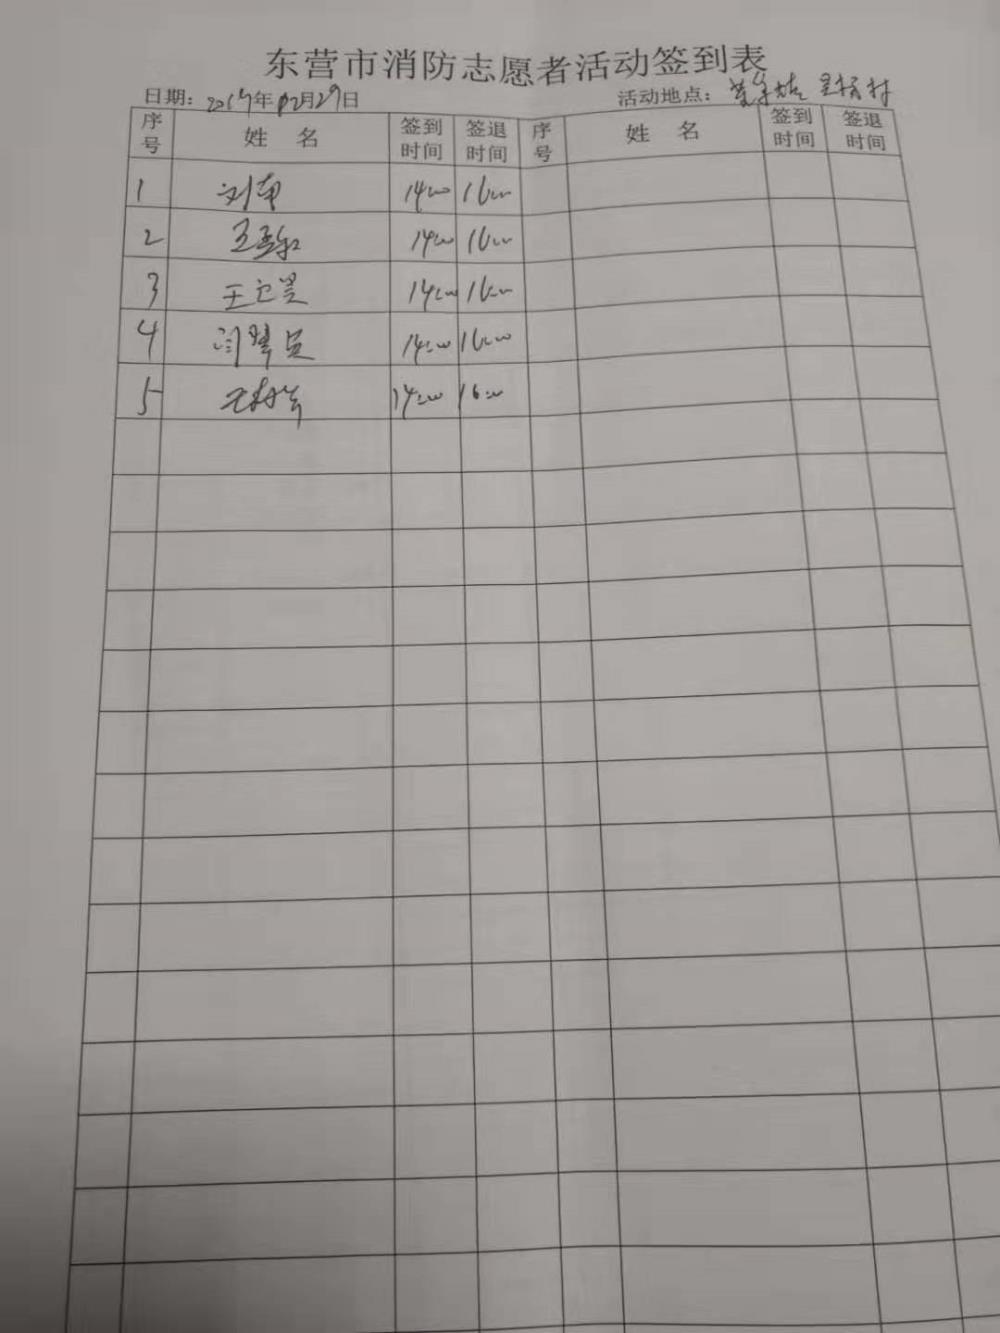 东营市消防志愿者活动签到表
日期：2019年12月29日 活动地点： 村
序号 姓 名 签到时间 签退时间 序号 姓 名 签到时间 签退时间
1 刘 14:00 16:00
2 王 14:00 16:00
3 王 14:00 16:00
4 闫 14:00 16:00
5 14:00 16:00